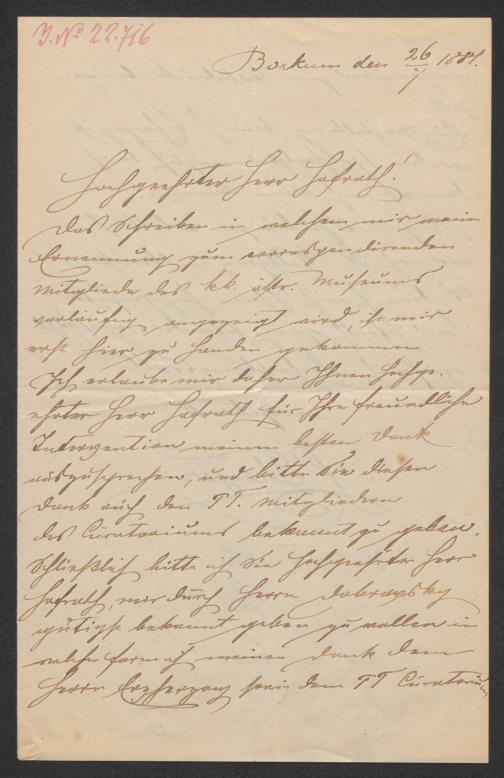 J. № 22.716
Borkum den 26/7 1884.
Hochgeehrter Herr Hofrath!
Das Schreiben in welchem mir meine
Ernennung zum correspondirenden
Mitgliede des kk. östr. Museums
vorläufig angezeigt wird, ist mir
erst hier zu Handen gekommen
Ich erlaube mir daher Ihnen hochge-
ehrter Herr Hofrath für Ihre freundliche
Intervention meinen besten Dank
auszusprechen, und bitte Sie diesen
Dank auch den TT. Mitgliedern
des Curatoriums bekannt zu geben.
Schließlich bitte ich Sie hochgeehrter Herr
Hofrath, mir durch Herrn Dobrawsky
gütigst bekannt geben zu wollen in
welcher Form ich meinen Dank dem
Herrn Erzherzog sowie dem TT Curatorium